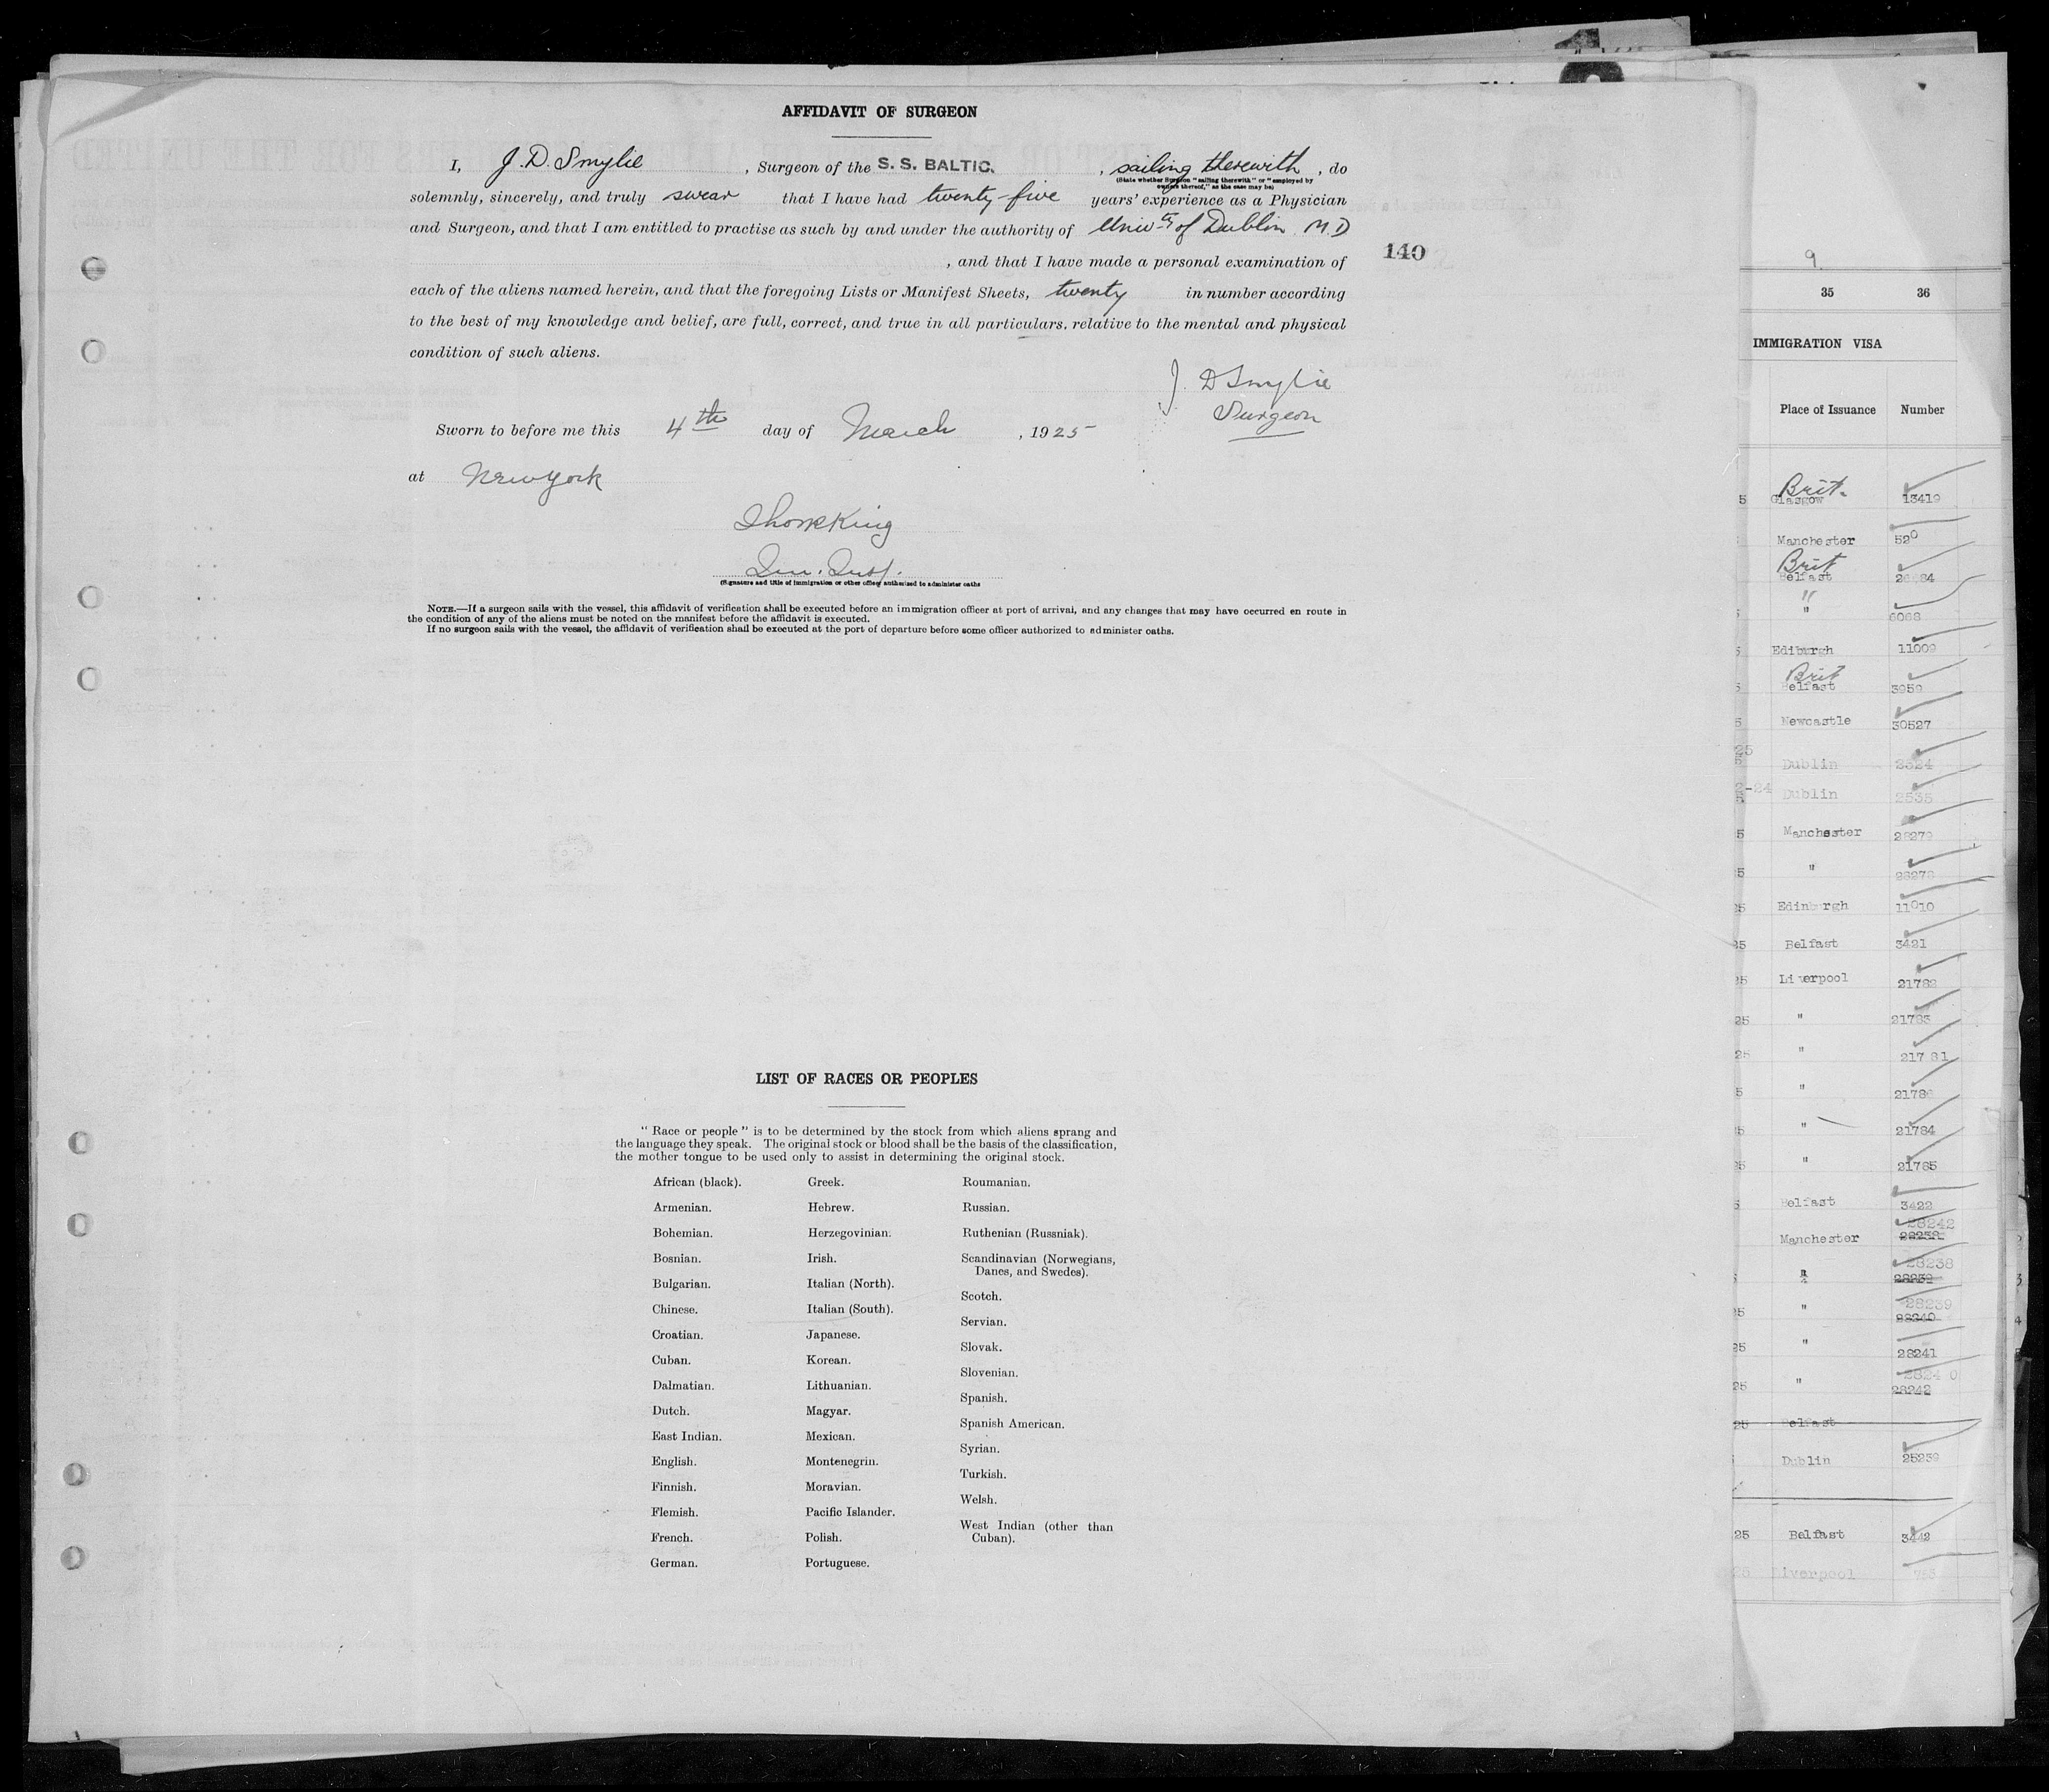 AFFIDAVIT OF SURGEON
I, J. D. Smylie , Surgeon of the S. S. BALTIC. , sailing therewith , do
(State whether Surgeon "sailing therewith" or "employed by
owners thereof," as the case may be)
solemnly, sincerely, and truly swear that I have had twenty-five years' experience as a Physician
and Surgeon, and that I am entitled to practise as such by and under the authority of Univty of Dublin M.D
, and that I have made a personal examination of
140
each of the aliens named herein, and that the foregoing Lists or Manifest Sheets, twenty in number according
to the best of my knowledge and belief, are full, correct, and true in all particulars. relative to the mental and physical
condition of such aliens.
J. D Smylie
Surgeon
Sworn to before me this 4th day of March , 1925
at New York
Thos King
Im. Insp.
(Signature and title of immigration or other officer authorised to administer oaths
NOTE.—If a surgeon sails with the vessel, this affidavit of verification shall be executed before an immigration officer at port of arrival, and any changes that may have occurred en route in
the condition of any of the aliens must be noted on the manifest before the affidavit is executed.
If no surgeon sails with the vessel, the affidavit of verification shall be executed at the port of departure before some officer authorized to administer oaths.
LIST OF RACES OR PEOPLES
" Race or people " is to be determined by the stock from which aliens sprang and
the language they speak. The original stock or blood shall be the basis of the classification,
the mother tongue to be used only to assist in determining the original stock.
African (black).
Armenian.
Bohemian.
Bosnian.
Bulgarian.
Chinese.
Croatian.
Cuban.
Dalmatian.
Dutch.
East Indian.
English.
Finnish.
Flemish.
French.
German.
Greek.
Hebrew.
Herzegovinian.
Irish.
Italian (North).
Italian (South).
Japanese.
Korean.
Lithuanian.
Magyar.
Mexican.
Montenegrin.
Moravian.
Pacific Islander.
Polish.
Portuguese.
Roumanian.
Russian.
Ruthenian (Russniak).
Scandinavian (Norwegians,
Danes, and Swedes).
Scotch.
Servian.
Slovak.
Slovenian.
Spanish.
Spanish American.
Syrian.
Turkish.
Welsh.
West Indian (other than
Cuban).
9.
35 36
IMMIGRATION VISA
Place of Issuance Number
Brit.
5 Glasgow 13419
Manchester 520
Brit
Belfast
"
" 6068
Edinburgh 11009
Brit
Belfast 3959
Newcastle 30527
Dublin 2524
Dublin 2535
5 Manchester 28279
5 " 28278
25 Edinburgh 11010
35 Belfast 3421
25 Liverpool 21782
25 " 21783
25 " 21781
5 " 2178
25 " 21784
25 " 21785
Belfast 3422
28242
Manchester 28238
28238
28239
28239
25 " 28240
25 " 28241
28240
25 " 28242
25 Belfast
Dublin 25239
25 Belfast 3442
25 Liverpool